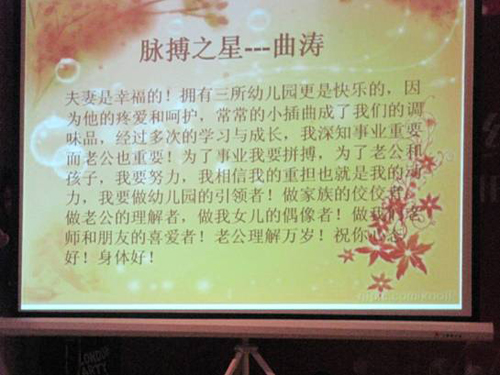 脉搏之星---曲涛
夫妻是幸福的！拥有三所幼儿园更是快乐的，因
为他的疼爱和呵护，常常的小插曲成了我们的调
味品，经过多次的学习与成长，我深知事业重要
而老公也重要！为了事业我要拼搏，为了老公和
孩子，我要努力，我相信我的重担也就是我的动
力，我要做幼儿园的引领者！做家族的佼佼者！
做老公的理解者，做我女儿的偶像者！做我们老
师和朋友的喜爱者！老公理解万岁！祝你心态
好！身体好！
LONDON